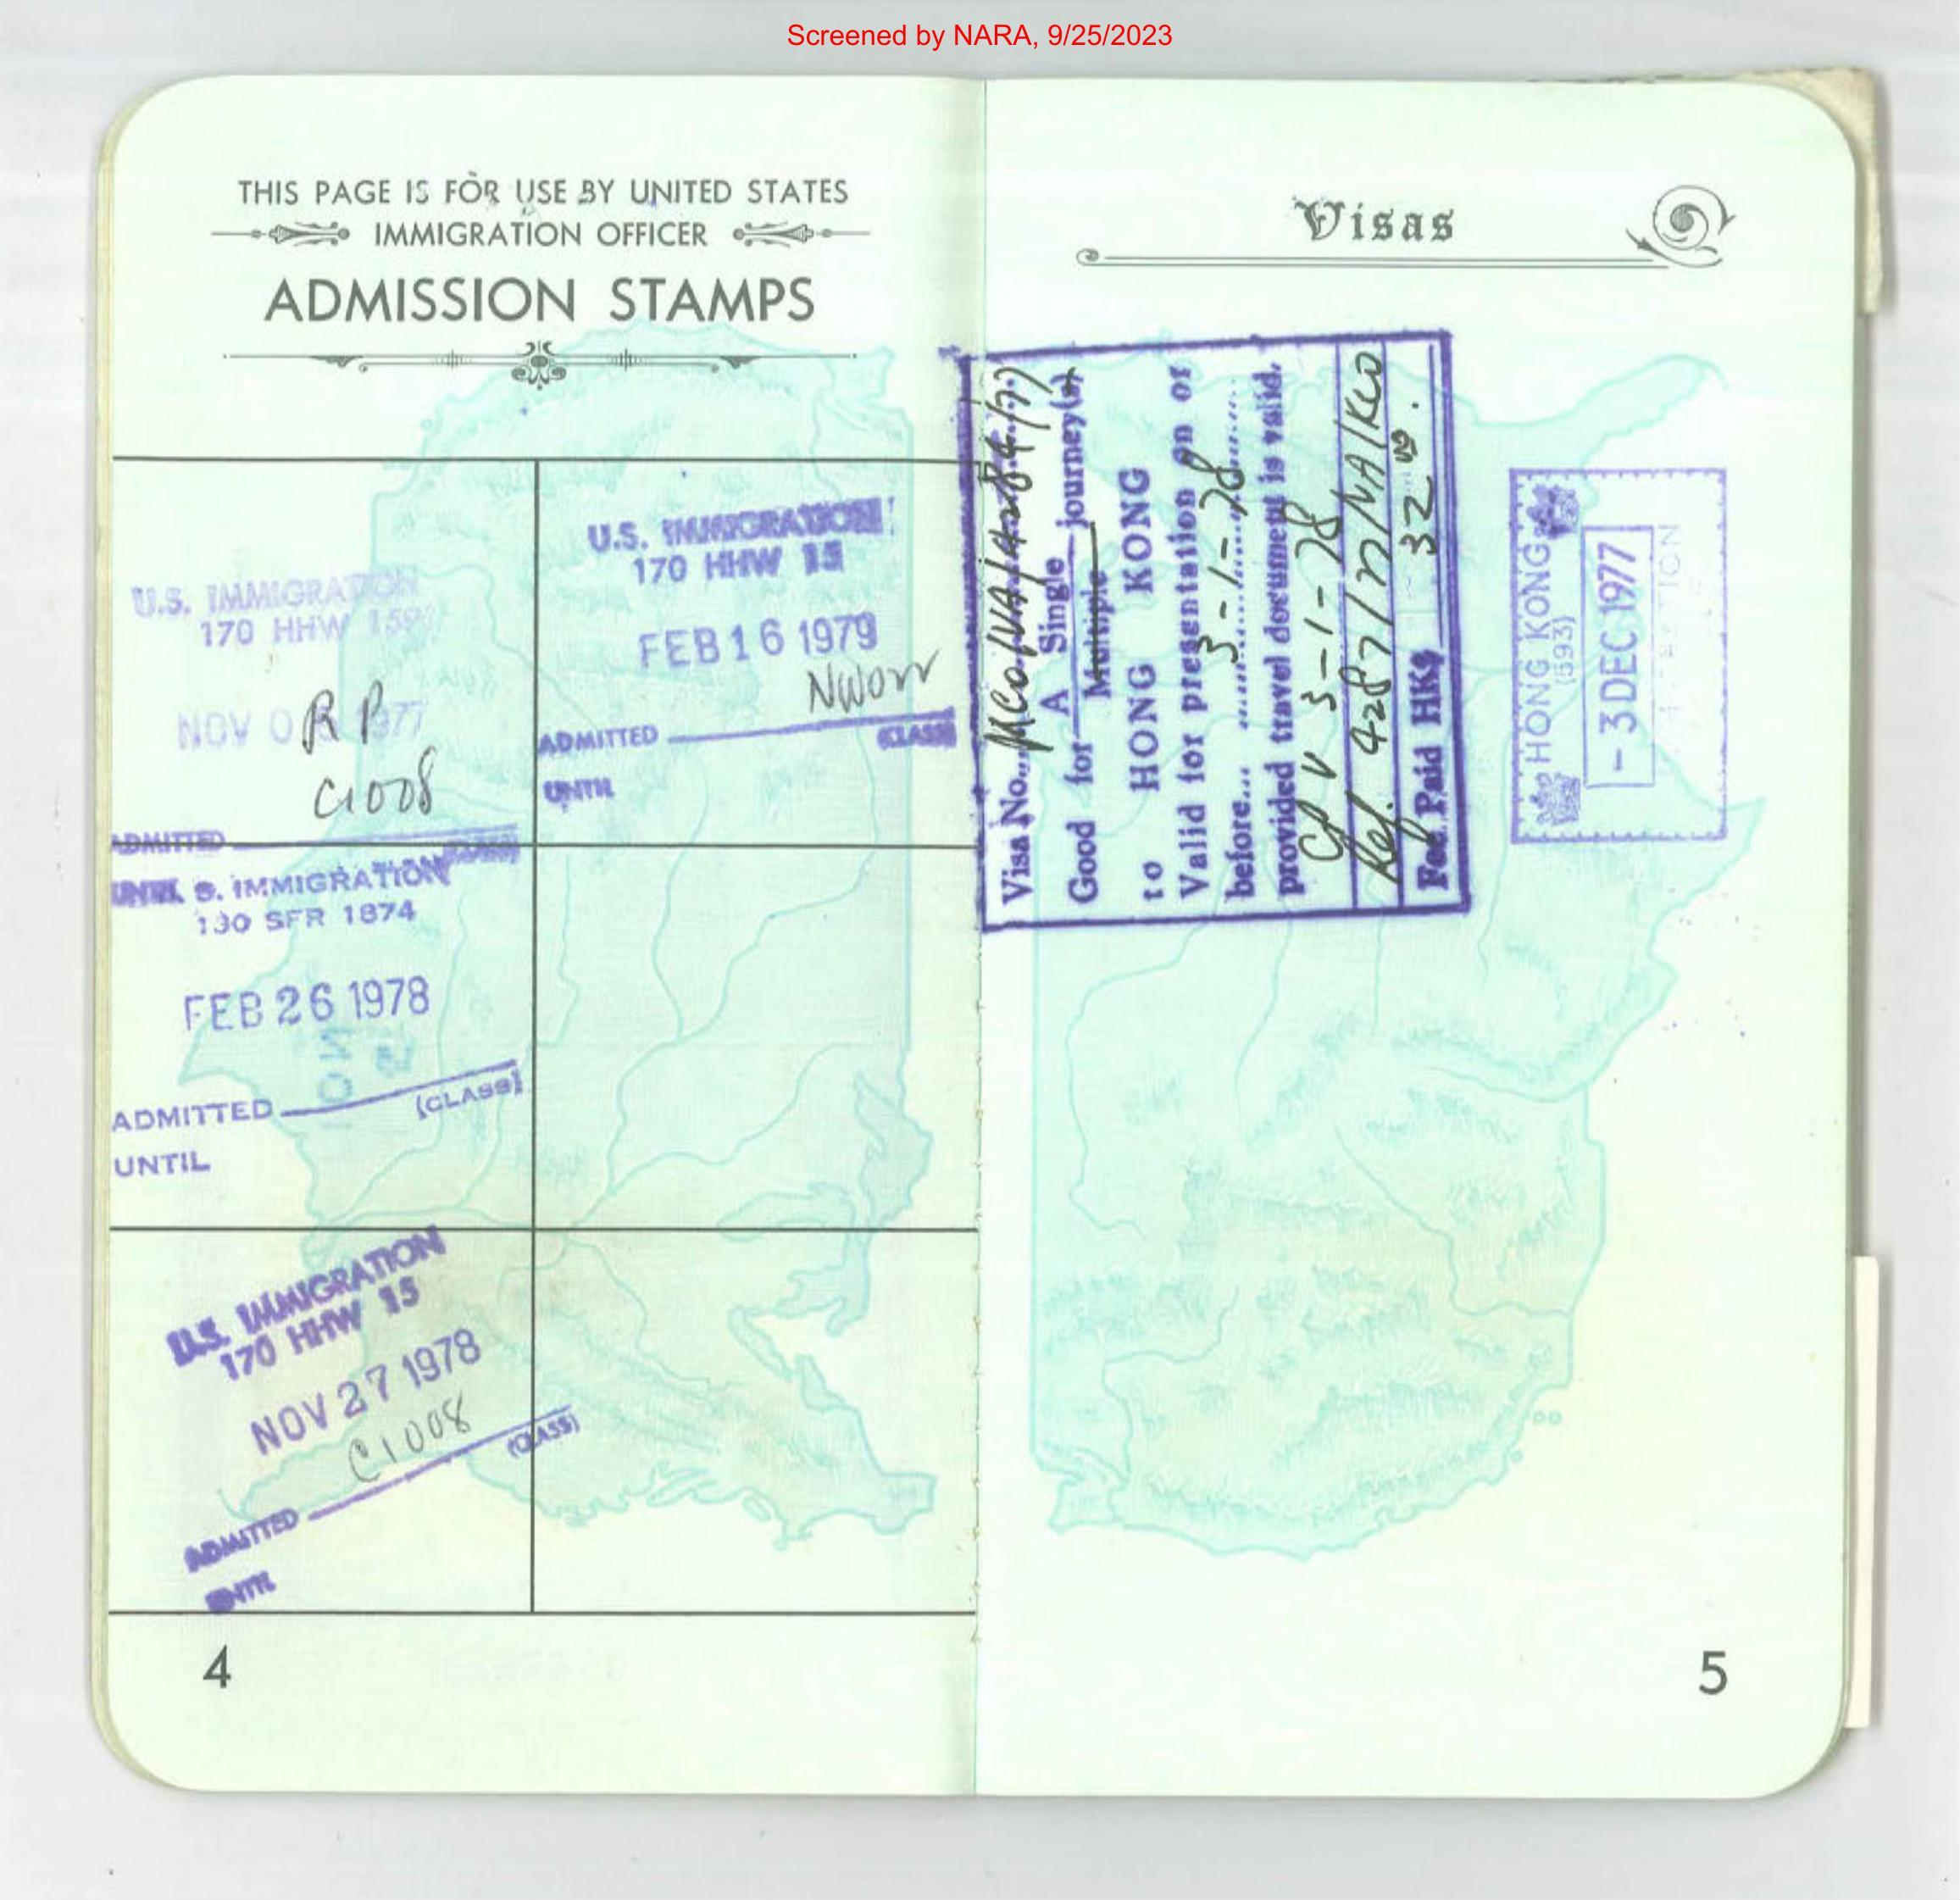 Screened by NARA, 9/25/2023
THIS PAGE IS FOR USE BY UNITED STATES
IMMIGRATION OFFICER
ADMISSION STAMPS
U.S. IMMIGRATION
170 HHW 159
NOV 0 1977
R P
C1008
ADMITTED
U.S. IMMIGRATION
170 HHW 15
FEB 16 1979
ADMITTED (CLASS)
UNTIL
S. IMMIGRATION
130 SFR 1874
FEB 26 1978
ADMITTED (CLASS)
UNTIL
U.S. IMMIGRATION
170 HHW 15
NOV 27 1978
C1008
ADMITTED (CLASS)
UNTIL
4
Visas
Visa No.
Good for A Single journey(s)
Multiple
to HONG KONG
Valid for presentation on or
before... 3-1-78
provided travel document is valid.
3-1-78
Ref. 4287/
Fee Paid HK$ 32
HONG KONG
(593)
-3 DEC 1977
5